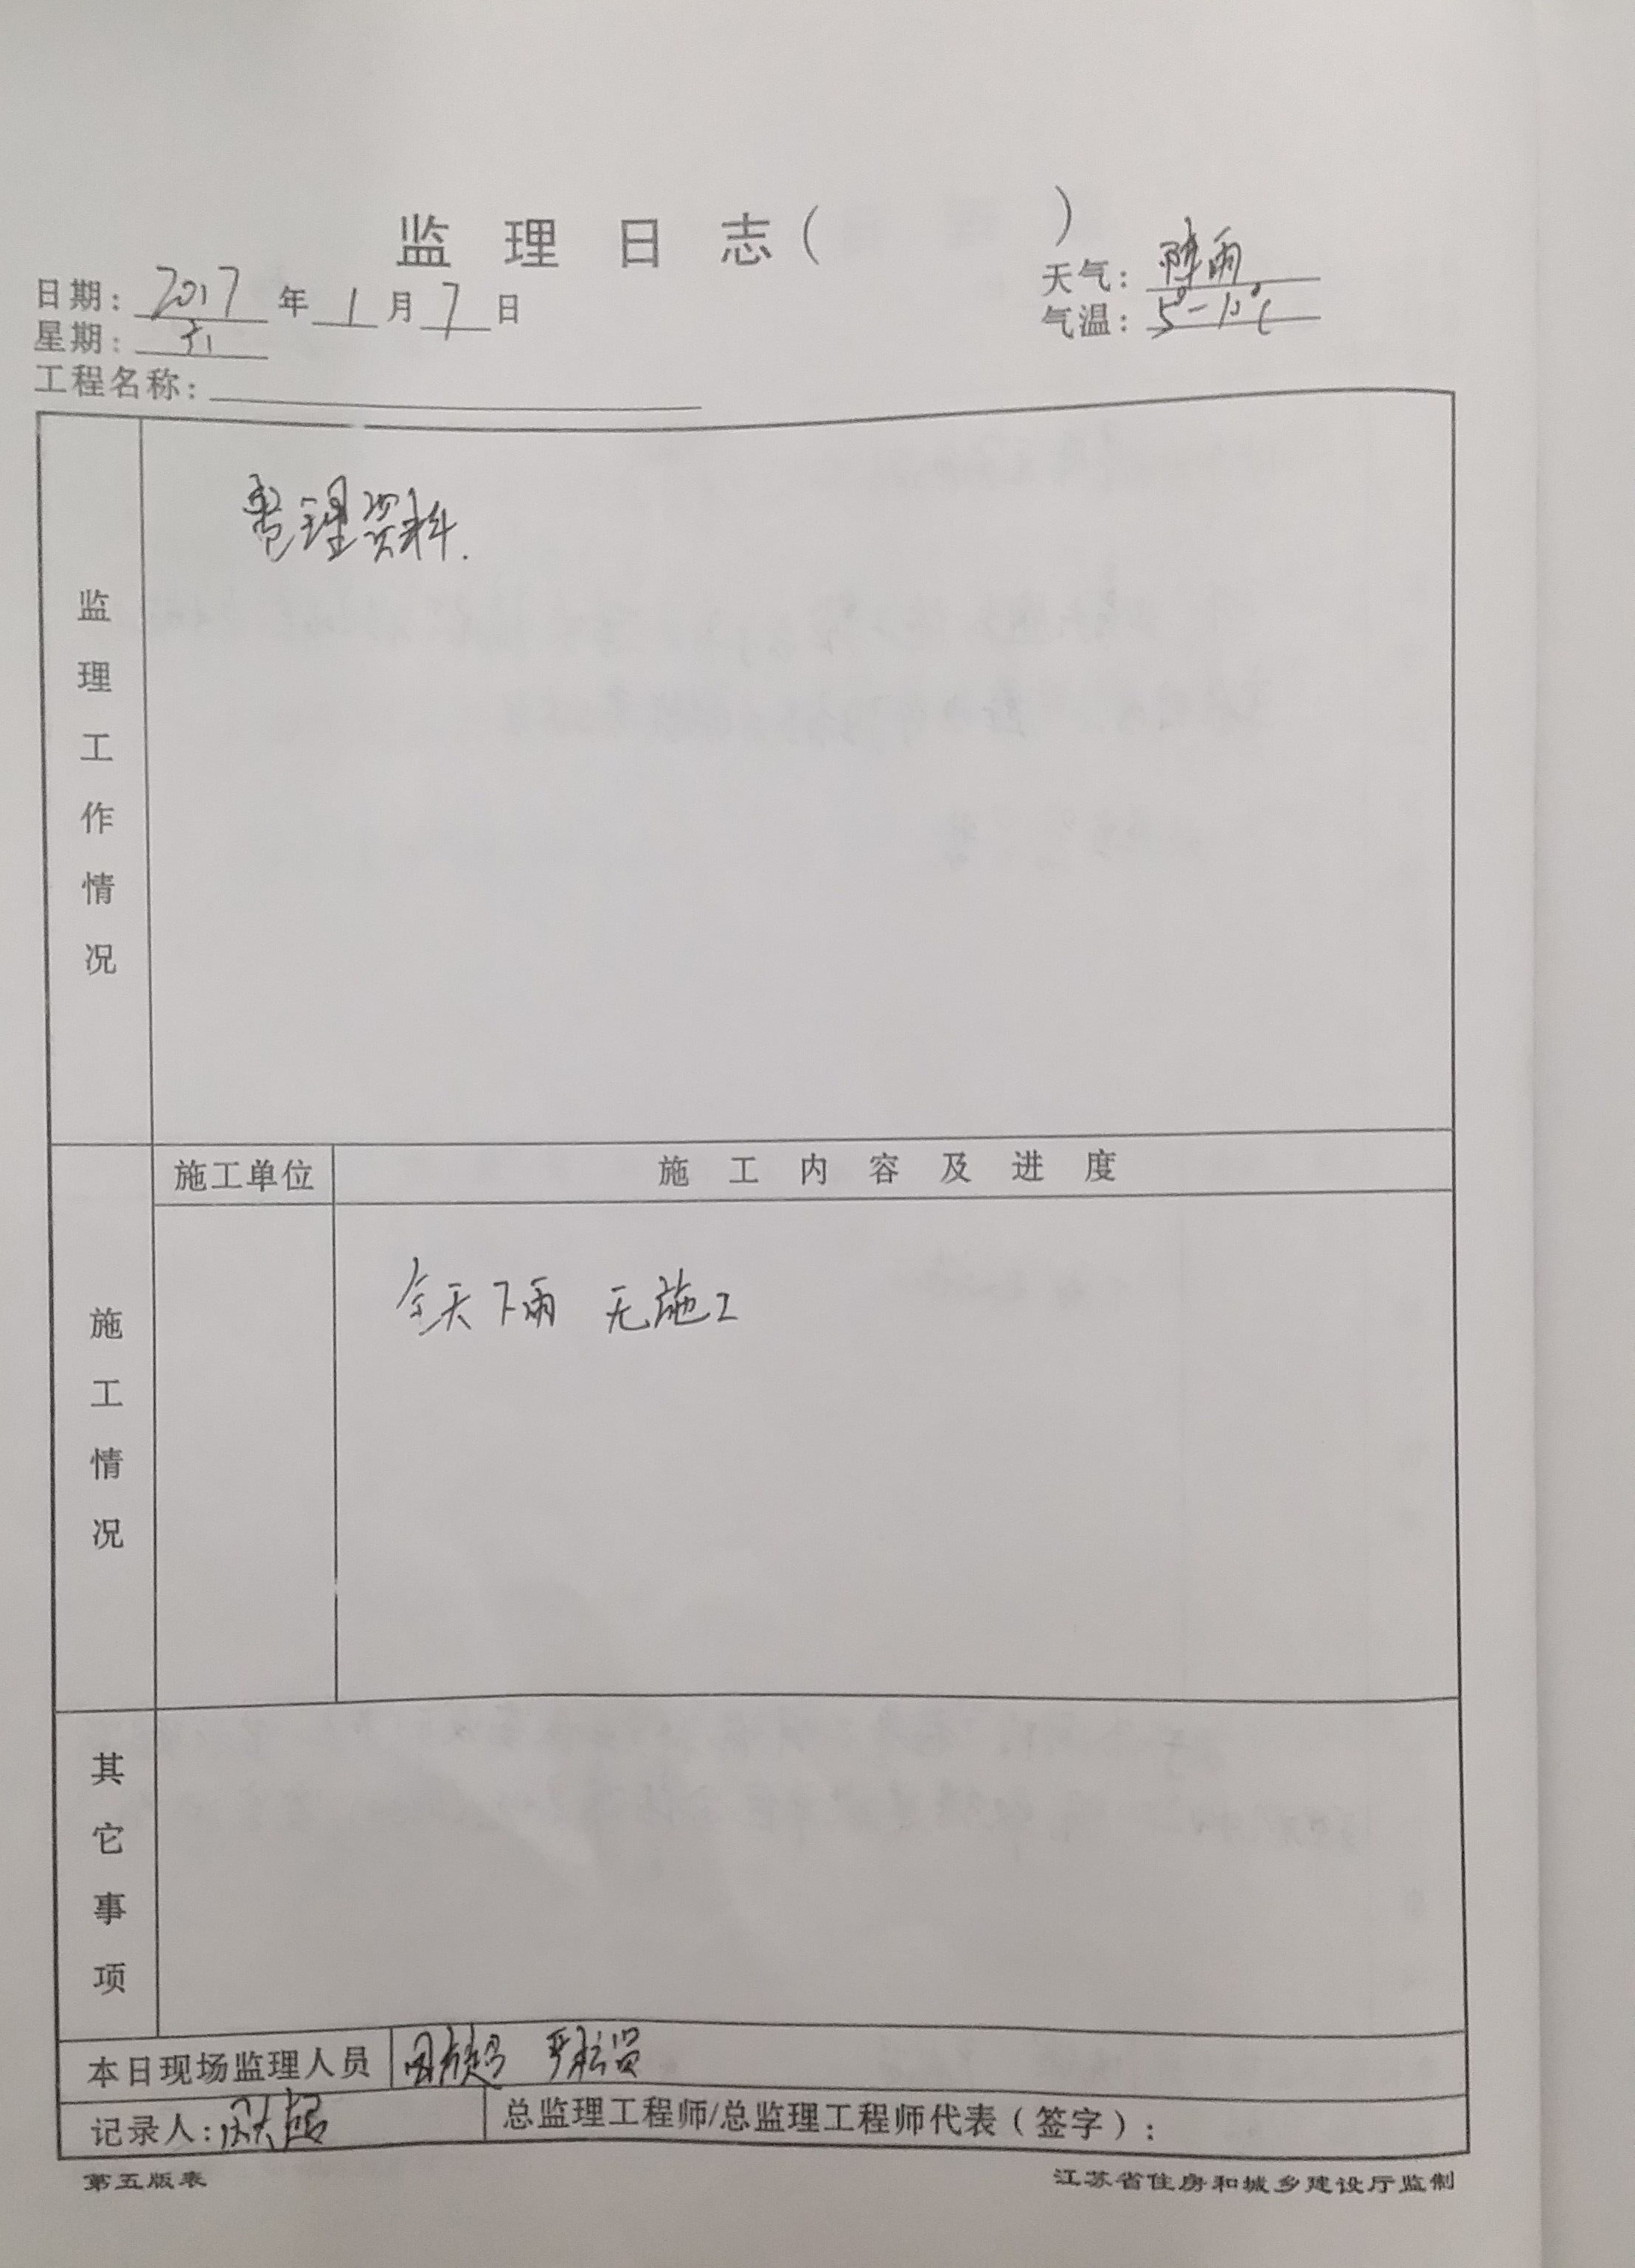 监理日志（ ）
天气：阵雨
日期：2017年1月7日
气温：5°-12℃
星期：
工程名称：
监理工作情况
整理资料.
施工单位 施工内容及进度
施工情况
全天下雨 无施工
其它事项
本日现场监理人员
记录人： 总监理工程师/总监理工程师代表（签字）：
第五版表 江苏省住房和城乡建设厅监制